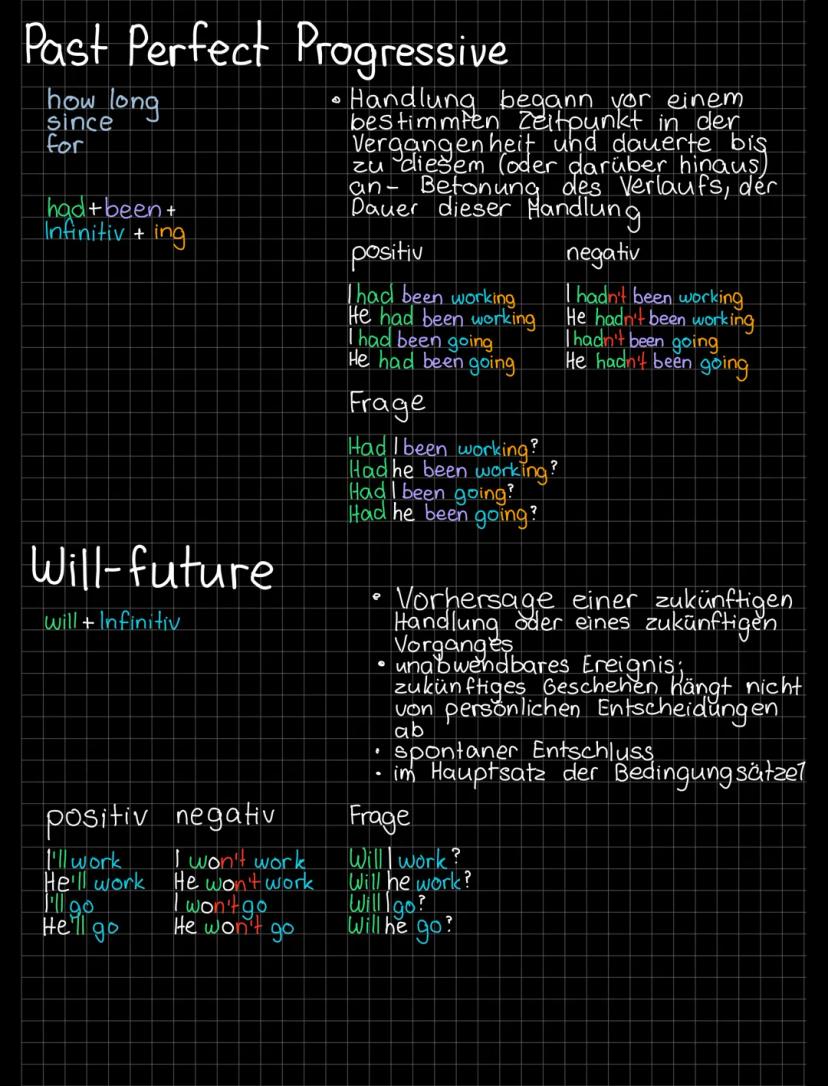 Past Perfect Progressive
how long
since
for
had+been+
Infinitiv + ing
• Handlung begann vor einem
bestimmten Zeitpunkt in der
Vergangenheit und dauerte bis
zu diesem (oder darüber hinaus)
an- Betonung des Verlaufs, der
Dauer dieser Handlung
positiv
I had been working
He had been working
I had been going
He had been going
negativ
I hadn't been working
He hadn't been working
I hadn't been going
He hadn't been going
Frage
Had I been working?
Had he been working?
Had I been going?
Had he been going?
Will-future
will + Infinitiv
• Vorhersage einer zukünftigen
Handlung oder eines zukünftigen
Vorganges
• unabwendbares Ereignis;
zukünftiges Geschehen hängt nicht
von persönlichen Entscheidungen
ab
• spontaner Entschluss
• im Hauptsatz der Bedingungsätze1
positiv
I'll work
He'll work
I'll go
He'll go
negativ
I won't work
He won't work
I won't go
He won't go
Frage
Will I work?
Will he work?
Will I go?
Will he go?